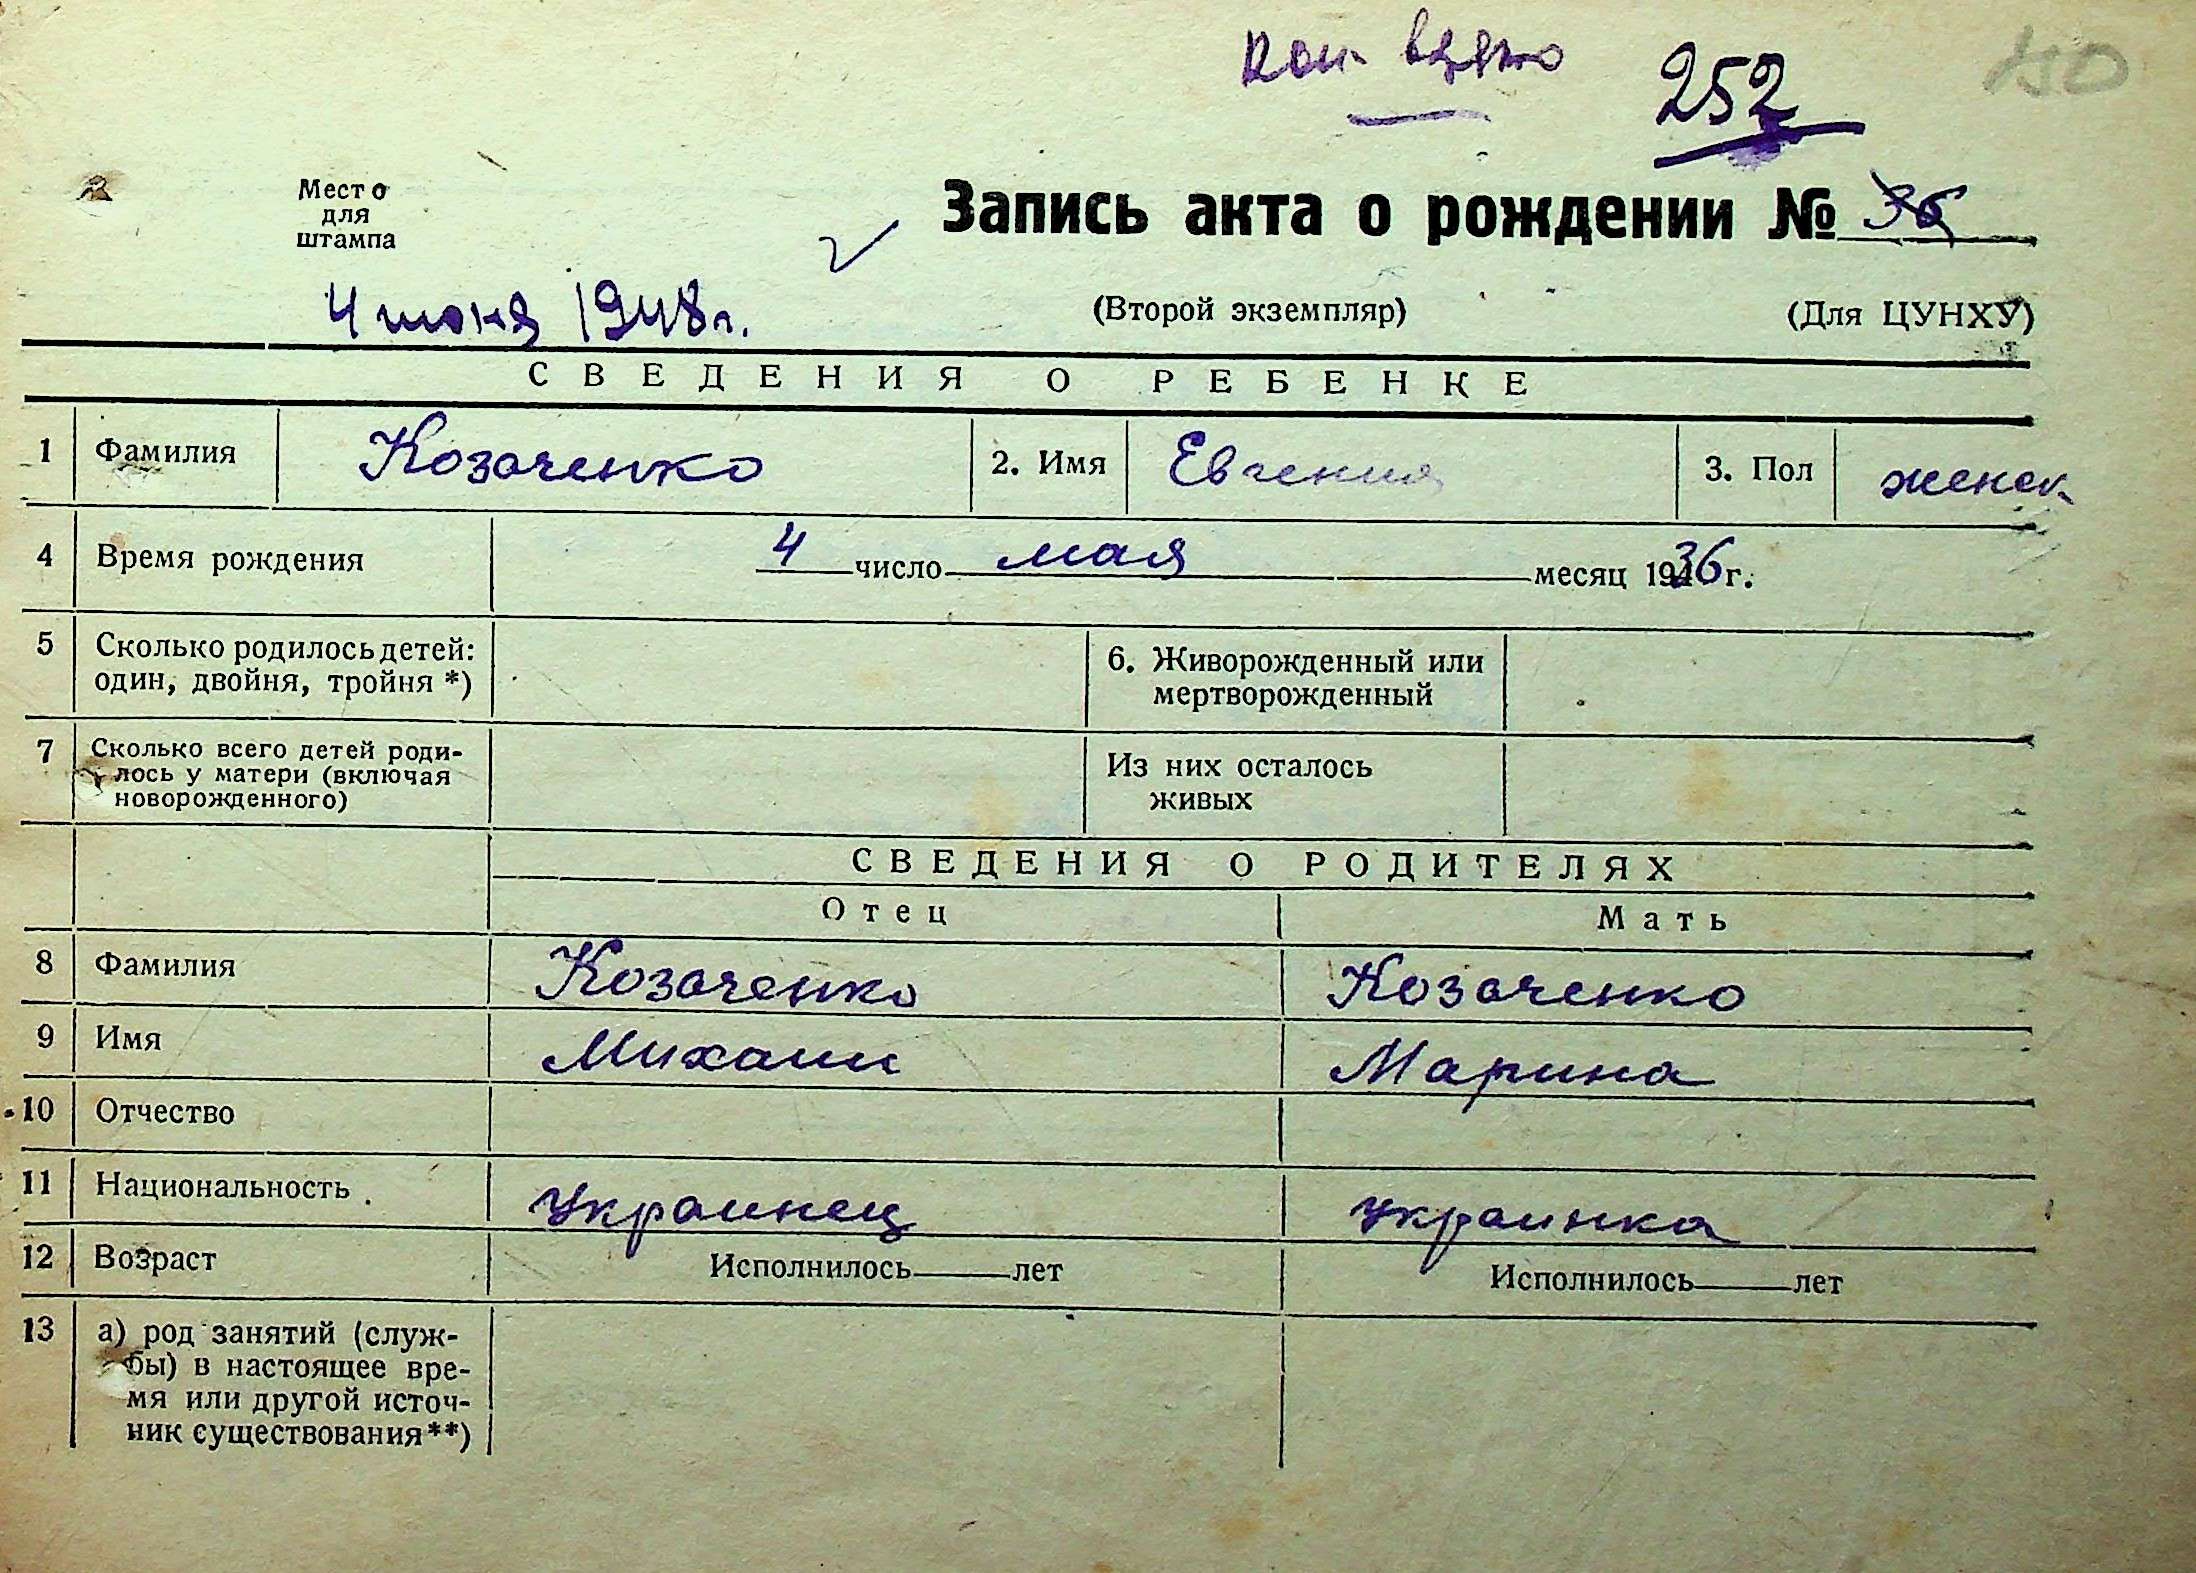 252
150
Место
для
штампа
Запись акта о рождении № 36
4 июня 1948 г.
(Второй экземпляр)
(Для ЦУНХУ)
СВЕДЕНИЯ О РЕБЕНКЕ
1 Фамилия Козаченко 2. Имя Евгения 3. Пол женск.
4 Время рождения 4 число мая месяц 1936 г.
5 Сколько родилось детей: 6. Живорожденный или
один, двойня, тройня *) мертворожденный
7 Сколько всего детей роди- Из них осталось
лось у матери (включая живых
новорожденного)
СВЕДЕНИЯ О РОДИТЕЛЯХ
Отец Мать
8 Фамилия Козаченко Козаченко
9 Имя Михаил Марина
10 Отчество
11 Национальность украинец украинка
12 Возраст Исполнилось лет Исполнилось лет
13 а) род занятий (служ-
бы) в настоящее вре-
мя или другой источ-
ник существования**)